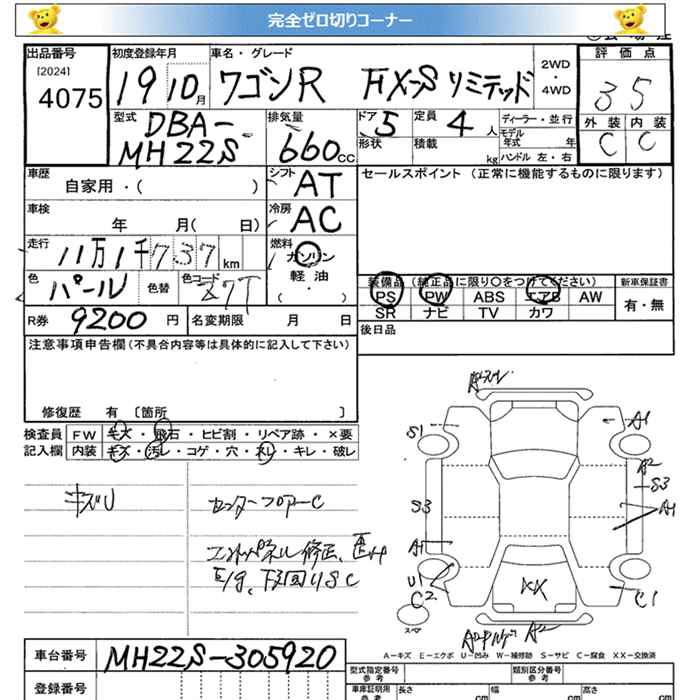 完全ゼロ切りコーナー
出品番号 初度登録年月 車名・グレード 2WD ・ 4WD 評価点
[2024]
4075 19 10月 ワゴンR FX-S リミテッド 35
型式 排気量 ドア 定員 ディーラー・並行 外装 内装
DBA-MH22S 660cc 5 4人 モデル年式 年 C C
形状 積載 kg ハンドル 左・右
車歴 シフト セールスポイント(正常に機能するものに限ります)
自家用・( ) AT
車検 冷房
年 月( 日) AC
走行 燃料
11万1千737km ガソリン
軽油
( ・ )
色 パール 色替 色コード Z7T
装備品(純正品に限り○をつけてください) 新車保証書
PS PW ABS エアB AW 有・無
SR ナビ TV カワ
R券 9200円 名変期限 月 日 後日品
注意事項申告欄(不具合内容等は具体的に記入して下さい)
修復歴 有〔箇所 〕
検査員 FW キズ・飛石・ヒビ割・リペア跡・×要
記入欄 内装 キズ・汚レ・コゲ・穴・ネレ・キレ・破レ
キズU センターフロアーC
エンドパネル修正、
E/g、下回りSC
S1 A1
A2
S3 S3
A1
A1
U1
C2 XX C1
スペア
A2
A-キズ E-エクボ U-凹み W-補修跡 S-サビ C-腐食 XX-交換済
車台番号 MH22S-305920
登録番号
型式指定番号 参考 類別区分番号 参考
車庫証明用 参考 長さ cm 幅 cm 高さ cm